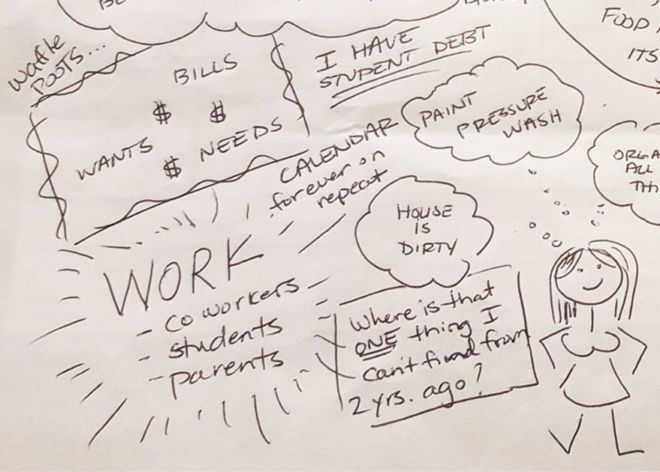 Waffle
POOTS...
BILLS
$ $
WANTS $ NEEDS
I HAVE
STUDENT DEBT
CALENDAR
forever on
repeat
PAINT
PRESSURE
WASH
FOOD
ITS
ORGA
ALL
TH
HOUSE
IS
DIRTY
WORK
- coworkers -
- students
- parents
Where is that
ONE thing I
can't find from
2 yrs. ago?